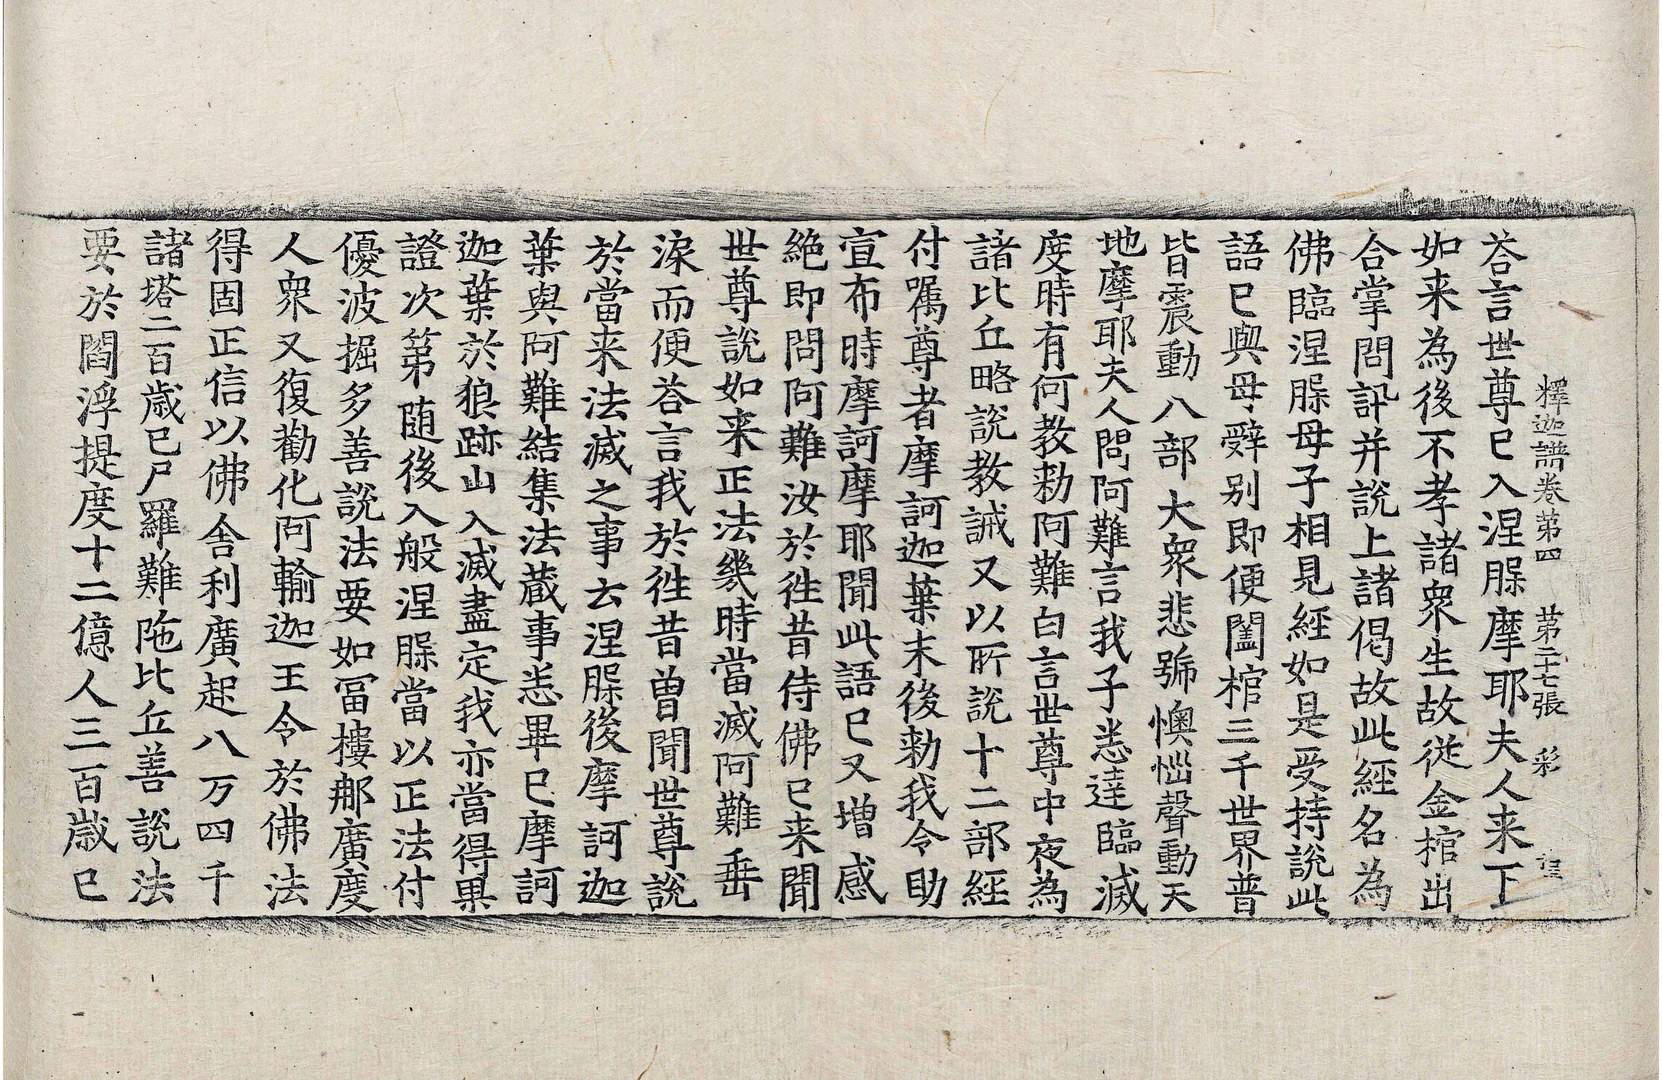 釋迦譜卷第四 第二十七張 彩
荅言世尊已入涅槃摩耶夫人来下
如来為後不孝諸衆生故從金棺出
合掌問訊并說上諸偈故此經名為
佛臨涅槃母子相見經如是受持說此
語已與母辝别即便闔棺三千世界普
皆震動八部大衆悲號懊惱聲動天
地摩耶夫人問阿難言我子悉達臨滅
度時有何教勑阿難白言世尊中夜為
諸比丘略說教誡又以所說十二部經
付囑尊者摩訶迦葉末後勑我令助
宣布時摩訶摩耶聞此語已又增感
絶即問阿難汝於徃昔侍佛已来聞
世尊說如来正法幾時當滅阿難垂
淚而便荅言我於徃昔曽聞世尊說
於當来法滅之事云涅槃後摩訶迦
葉與阿難結集法蔵事悉畢已摩訶
迦葉於狼跡山入滅盡定我亦當得果
證次第随後入般涅槃當以正法付
優波掘多善說法要如冨樓那廣度
人衆又復勸化阿輸迦王令於佛法
得固正信以佛舎利廣起八万四千
諸塔二百歳已尸羅難陁比丘善說法
要於閻浮提度十二億人三百歳已